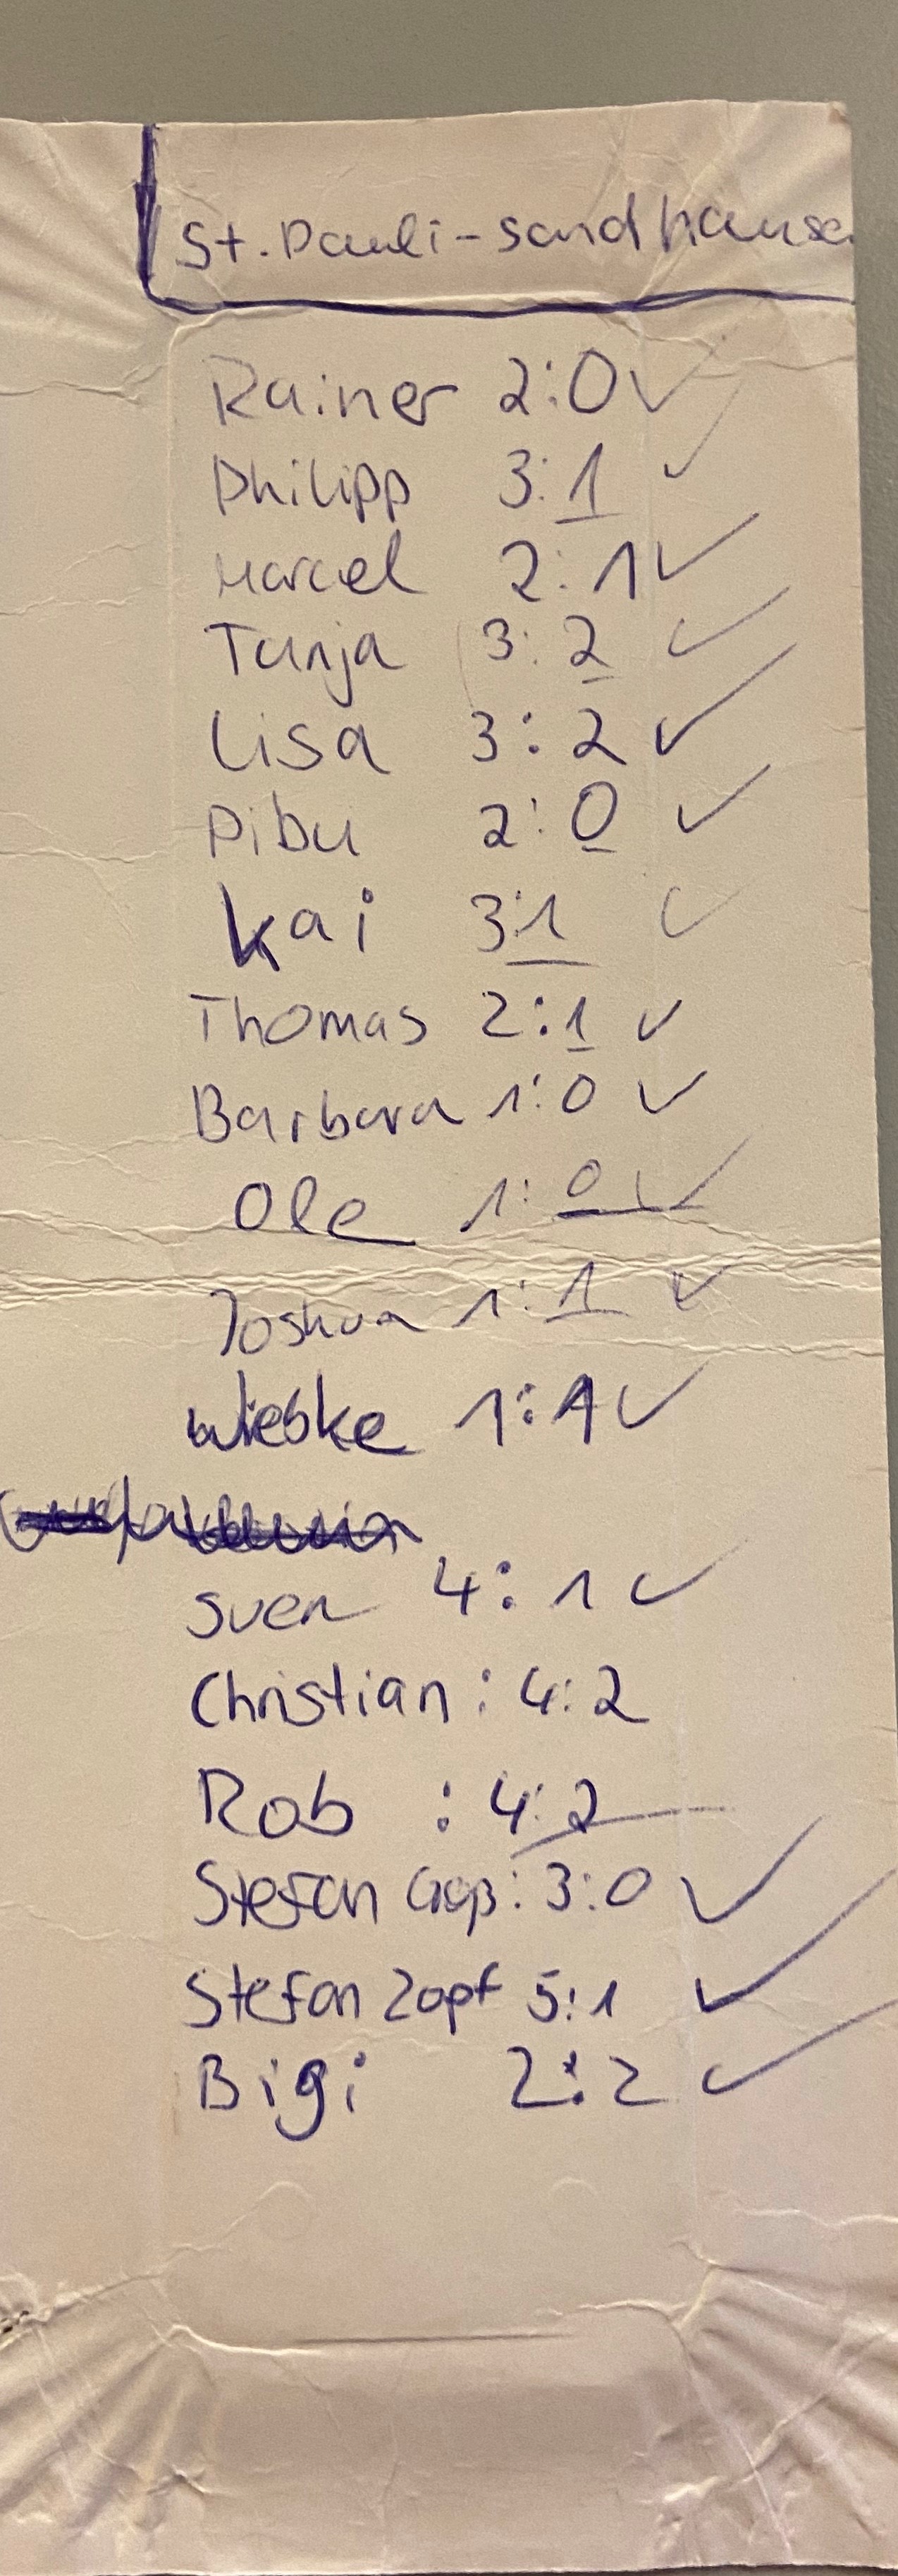 St. Pauli - Sandhause
Rainer 2:0 ✓
Philipp 3:1 ✓
Marcel 2:1 ✓
Tanja 3:2 ✓
Lisa 3:2 ✓
Pibu 2:0 ✓
Kai 3:1 ✓
Thomas 2:1 ✓
Barbara 1:0 ✓
Ole 1:0 ✓
Joshua 1:1 ✓
Wiebke 1:1 ✓
Sven 4:1 ✓
Christian: 4:2
Rob : 4:2
Stefan : 3:0 ✓
Stefan Zopf 5:1 ✓
Bigi 2:2 ✓